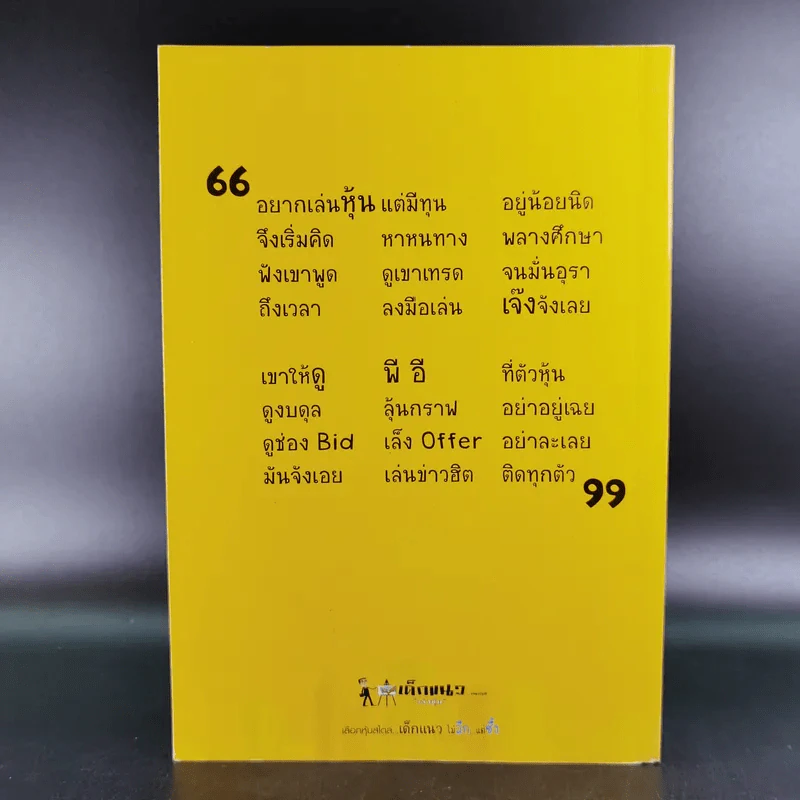 “
อยากเล่นหุ้น แต่มีทุน อยู่น้อยนิด
จึงเริ่มคิด หาหนทาง พลางศึกษา
ฟังเขาพูด ดูเขาเทรด จนมั่นอุรา
ถึงเวลา ลงมือเล่น เจ๊งจังเลย
เขาให้ดู พี อี ที่ตัวหุ้น
ดูงบดุล ลุ้นกราฟ อย่าอยู่เฉย
ดูช่อง Bid เล็ง Offer อย่าละเลย
มันจังเอย เล่นข่าวฮิต ติดทุกตัว
”
เด็กแนว
เลือกหุ้นสไตล์...เด็กแนว ไม่มึน แต่ซึ้ง